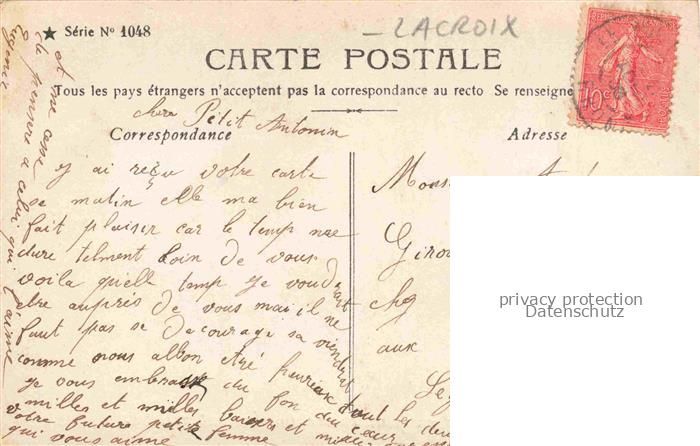 ★ Série N° 1048
LACROIX
CARTE POSTALE
Tous les pays étrangers n'acceptent pas la correspondance au recto Se renseigne
cher Petit Antonin
Correspondance
Adresse
10c
j ai reçu votre carte
se matin elle ma bien
fait plaisir car le temp me
dure telment loin de vous
voila quelle temp je voudrait
etre auprés de vous mai il ne
faut pas se decourage sa viendra
comme nous allon etré heureux tout les deux
je vous embrasse du fon du cœur
milles et milles baisers et
votre future petite femme
qui vous aime
et une
de pensers a celui qui l'aime
Mons
Giro
chez
aux
privacy protection
Datenschutz